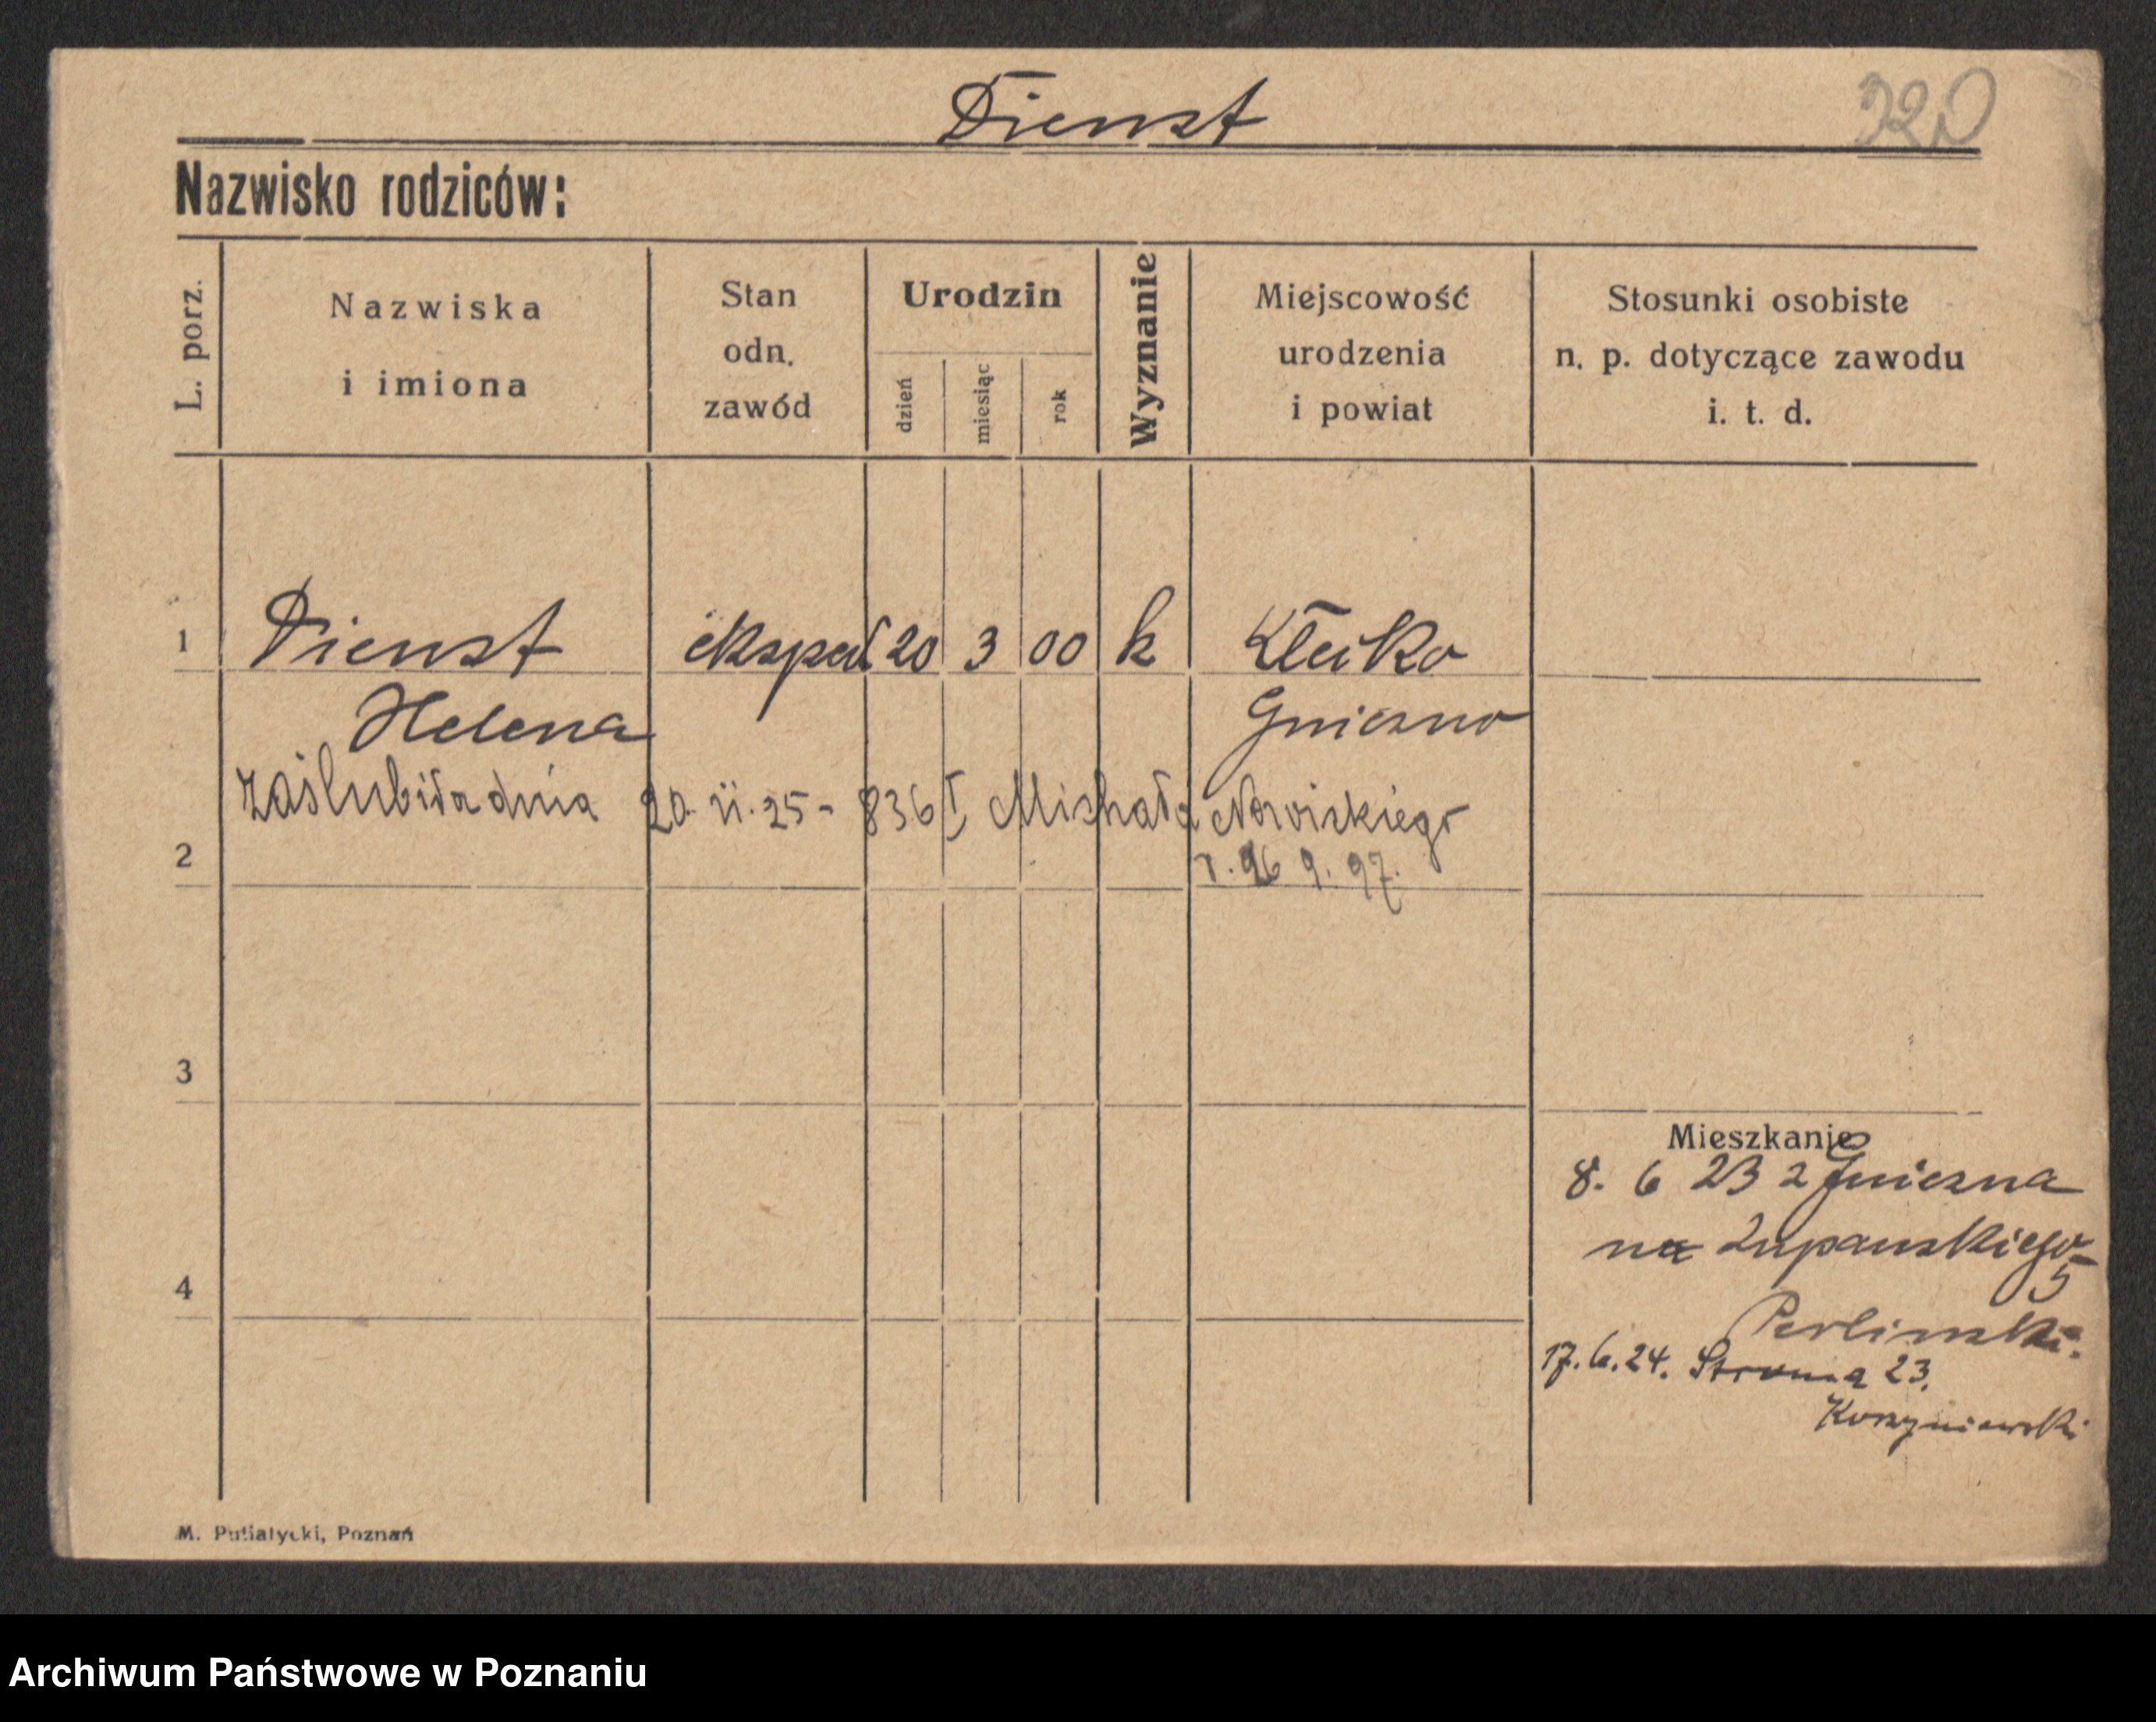 Dienst
320
Nazwisko rodziców:
L. porz.
Nazwiska
i imiona
Stan
odn.
zawód
Urodzin
dzień
miesiąc
rok
Wyznanie
Miejscowość
urodzenia
i powiat
Stosunki osobiste
n. p. dotyczące zawodu
i. t. d.
1 Dienst eksped 20 3 00 k Kłecko
Helena Gniezno
zaślubiła dnia 20. 11. 25 - 836 I Michała Nowickiego
2
26 9. 97.
3
Mieszkanie
8. 6 23 z Gniezna
na Żupańskiego
5
4
Perliński.
17. 6. 24. Stroma 23.
M. Putiatycki, Poznań
Archiwum Państwowe w Poznaniu